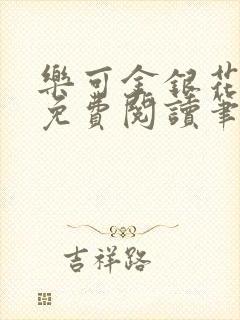 樂可金銀花
免費閱讀筆
吉祥路